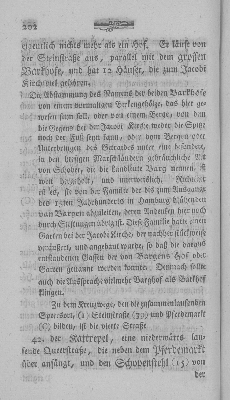 202
gentlich nichts mehr als ein Hof. Er läuft von
der Steinstraße aus, parallel mit dem großen
Barkhofe, und hat 12 Häuser, die zum Jacobi
Kirchspiel gehören.
Die Abstammung des Namens der beiden Barkhöfe
von einem vormaligen Birkengehölze, das hier ge-
wesen seyn soll, oder von einem Berge, von dem
die Gegend bei der Jacobi Kirche weder die Spitze
noch der Fuß seyn kann, oder vom Bergen oder
Unterbringen des Getraides, da besonders
in den hiesigen Marschländern gewöhnliche Art
von Schober, die die Landleute Barg nennen, ist
von hergeholt, und unerweislich.
ist, sie von der Familie der bis zum Ausgange
des 13ten Jahrhunderts in Hamburg blühenden
von Bargen abzuleiten, deren Andenken hier auch
durch Stiftungen Diese Familie hatte
bei der Jacobi Kirche, der nachher stückweise
veräußert, und angebauet wurde, so daß die daraus
entstandenen Gassen die von Bargens Hof oder
Garten genannt werden konnten. Demnach sollte
auch die Aussprache vielmehr Barghof als Barkhof
klingen.
Zu dem Kreuzwege, den die zusammenlaufenden
Speersort, (1) Steinstraße (39) und Pferdemarkt
bilden, ist die vierte Straße
42. der Kattrepel, eine niederwärts lau-
fende Querstraße, die neben dem Pferdemarkt
über anfängt, und den Schopenstehl (15) von
der